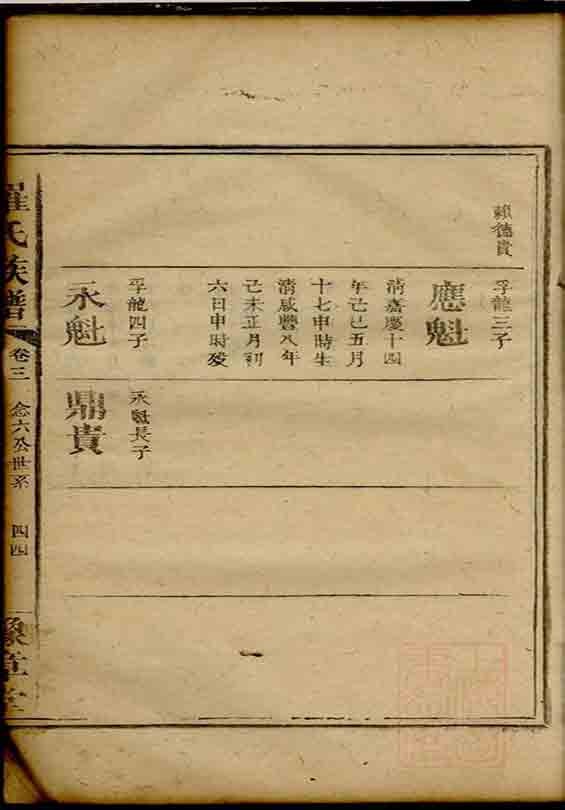 賴德貴
孚龍三子
應魁
清嘉慶十四
年己巳五月
十七申時生
清咸豐八年
己未正月初
六日申時歿
孚龍四子
永魁
永魁長子
鼎貴
羅氏族譜
卷三
念六公世系
四四
豫章堂